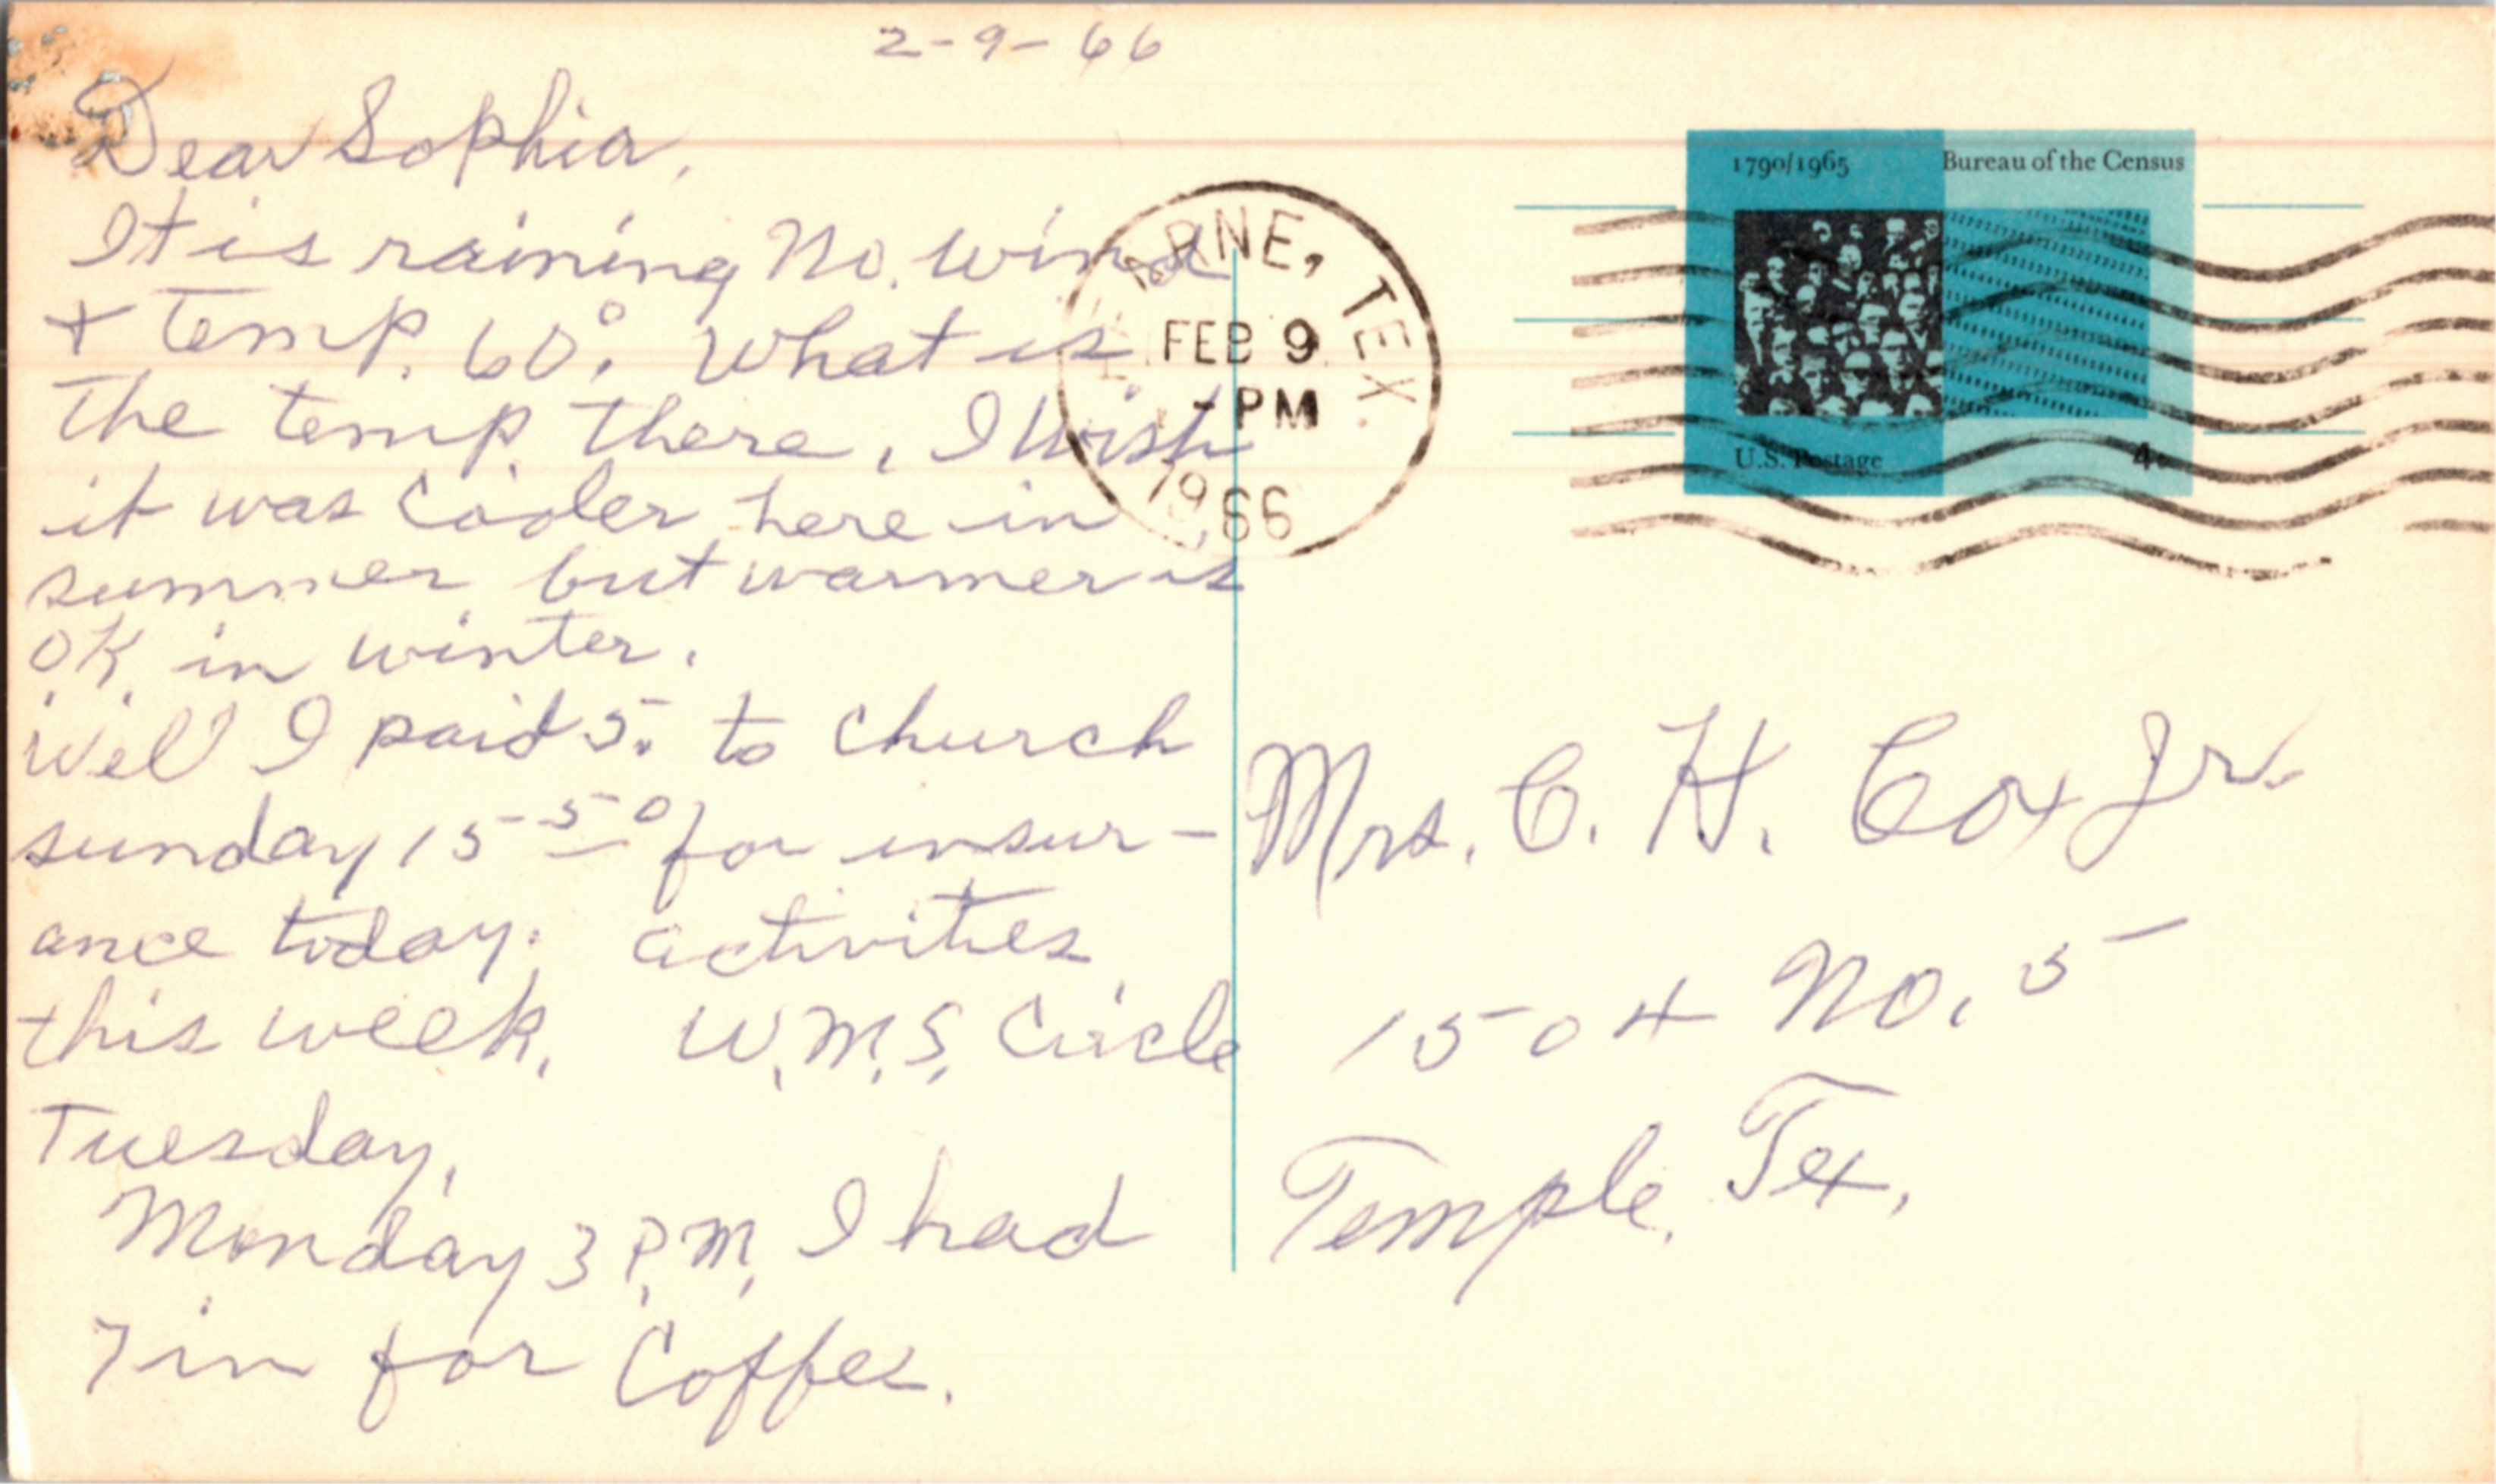 2-9-66
Dear Sophia,
It is raining No. wind
+ Temp. 60°. What is
the temp there, I wish
it was cooler here in
summer but warmer is
OK in winter.
Well I paid 5. to church
sunday 15 50 for insur-
ance today. activities
this week. W.M.S. Circle
Tuesday.
Monday 3 P.M. I had
7 in for Coffee.
ARNE, TEX.
FEB 9
-PM
1966
1790/1965 Bureau of the Census
U.S. Postage 4c
Mrs. C. H. Cox Jr.
1504 No. 5
Temple, Tex.